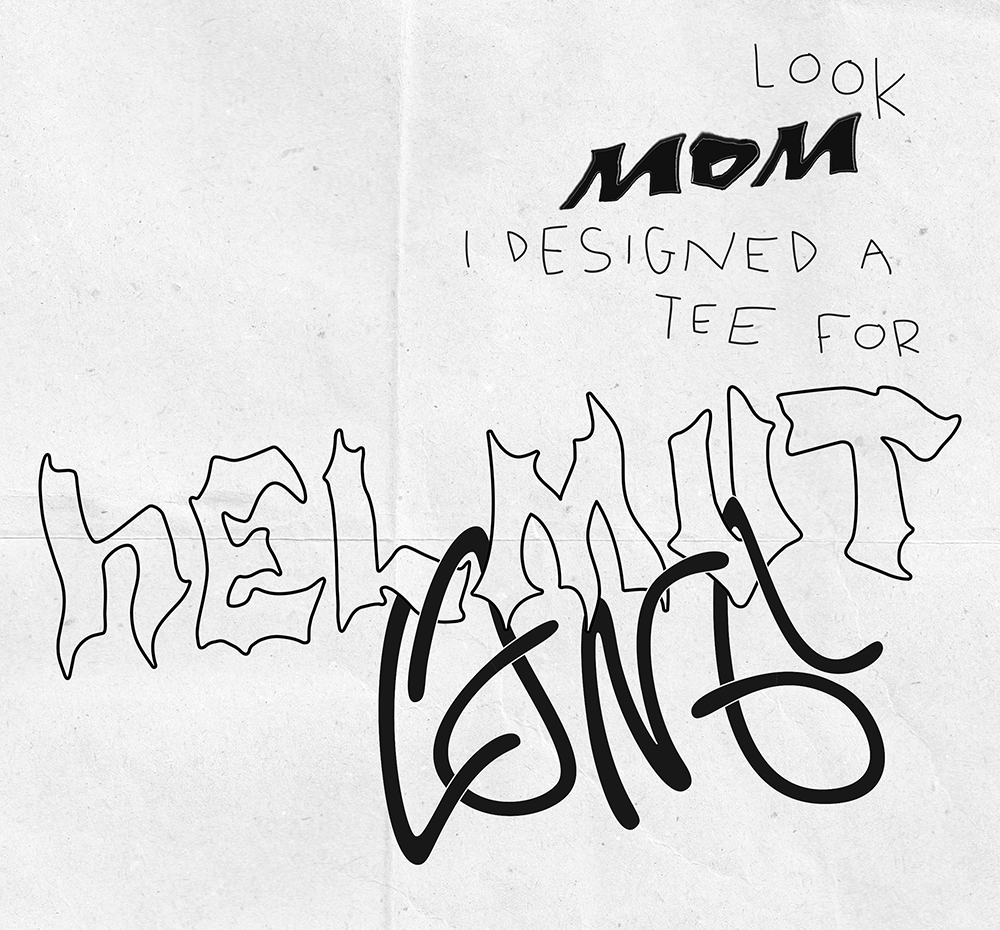 LOOK
MOM
I DESIGNED A
TEE FOR
hELMUT
LANG